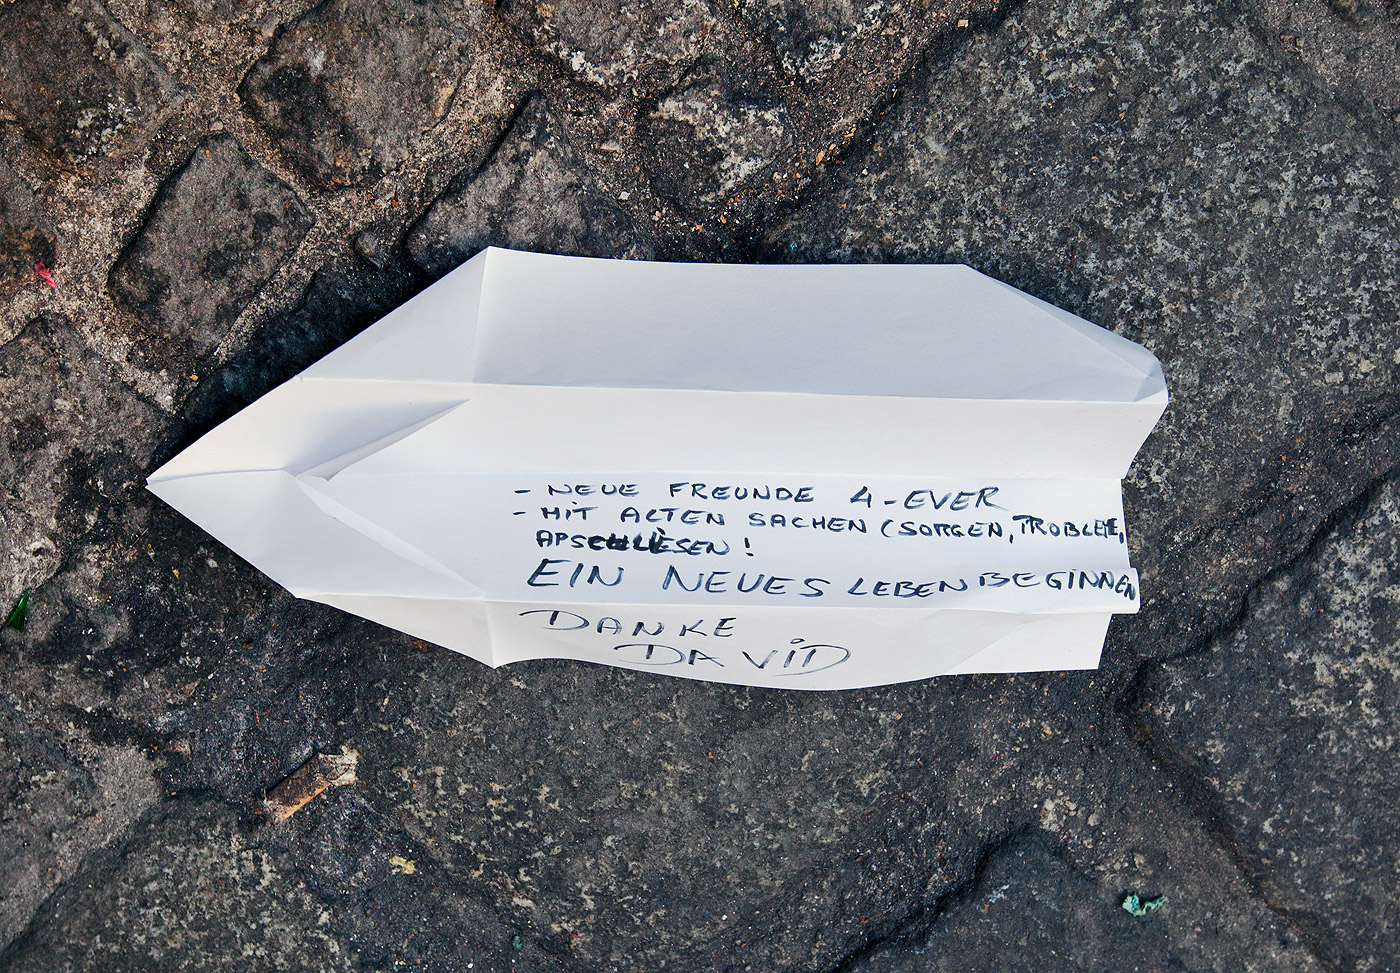 - NEUE FREUNDE 4-EVER
- MIT ALTEN SACHEN (SORGEN, PROBLEME,
APSCHLIESEN!
EIN NEUES LEBEN BEGINNEN
DANKE
DAVID